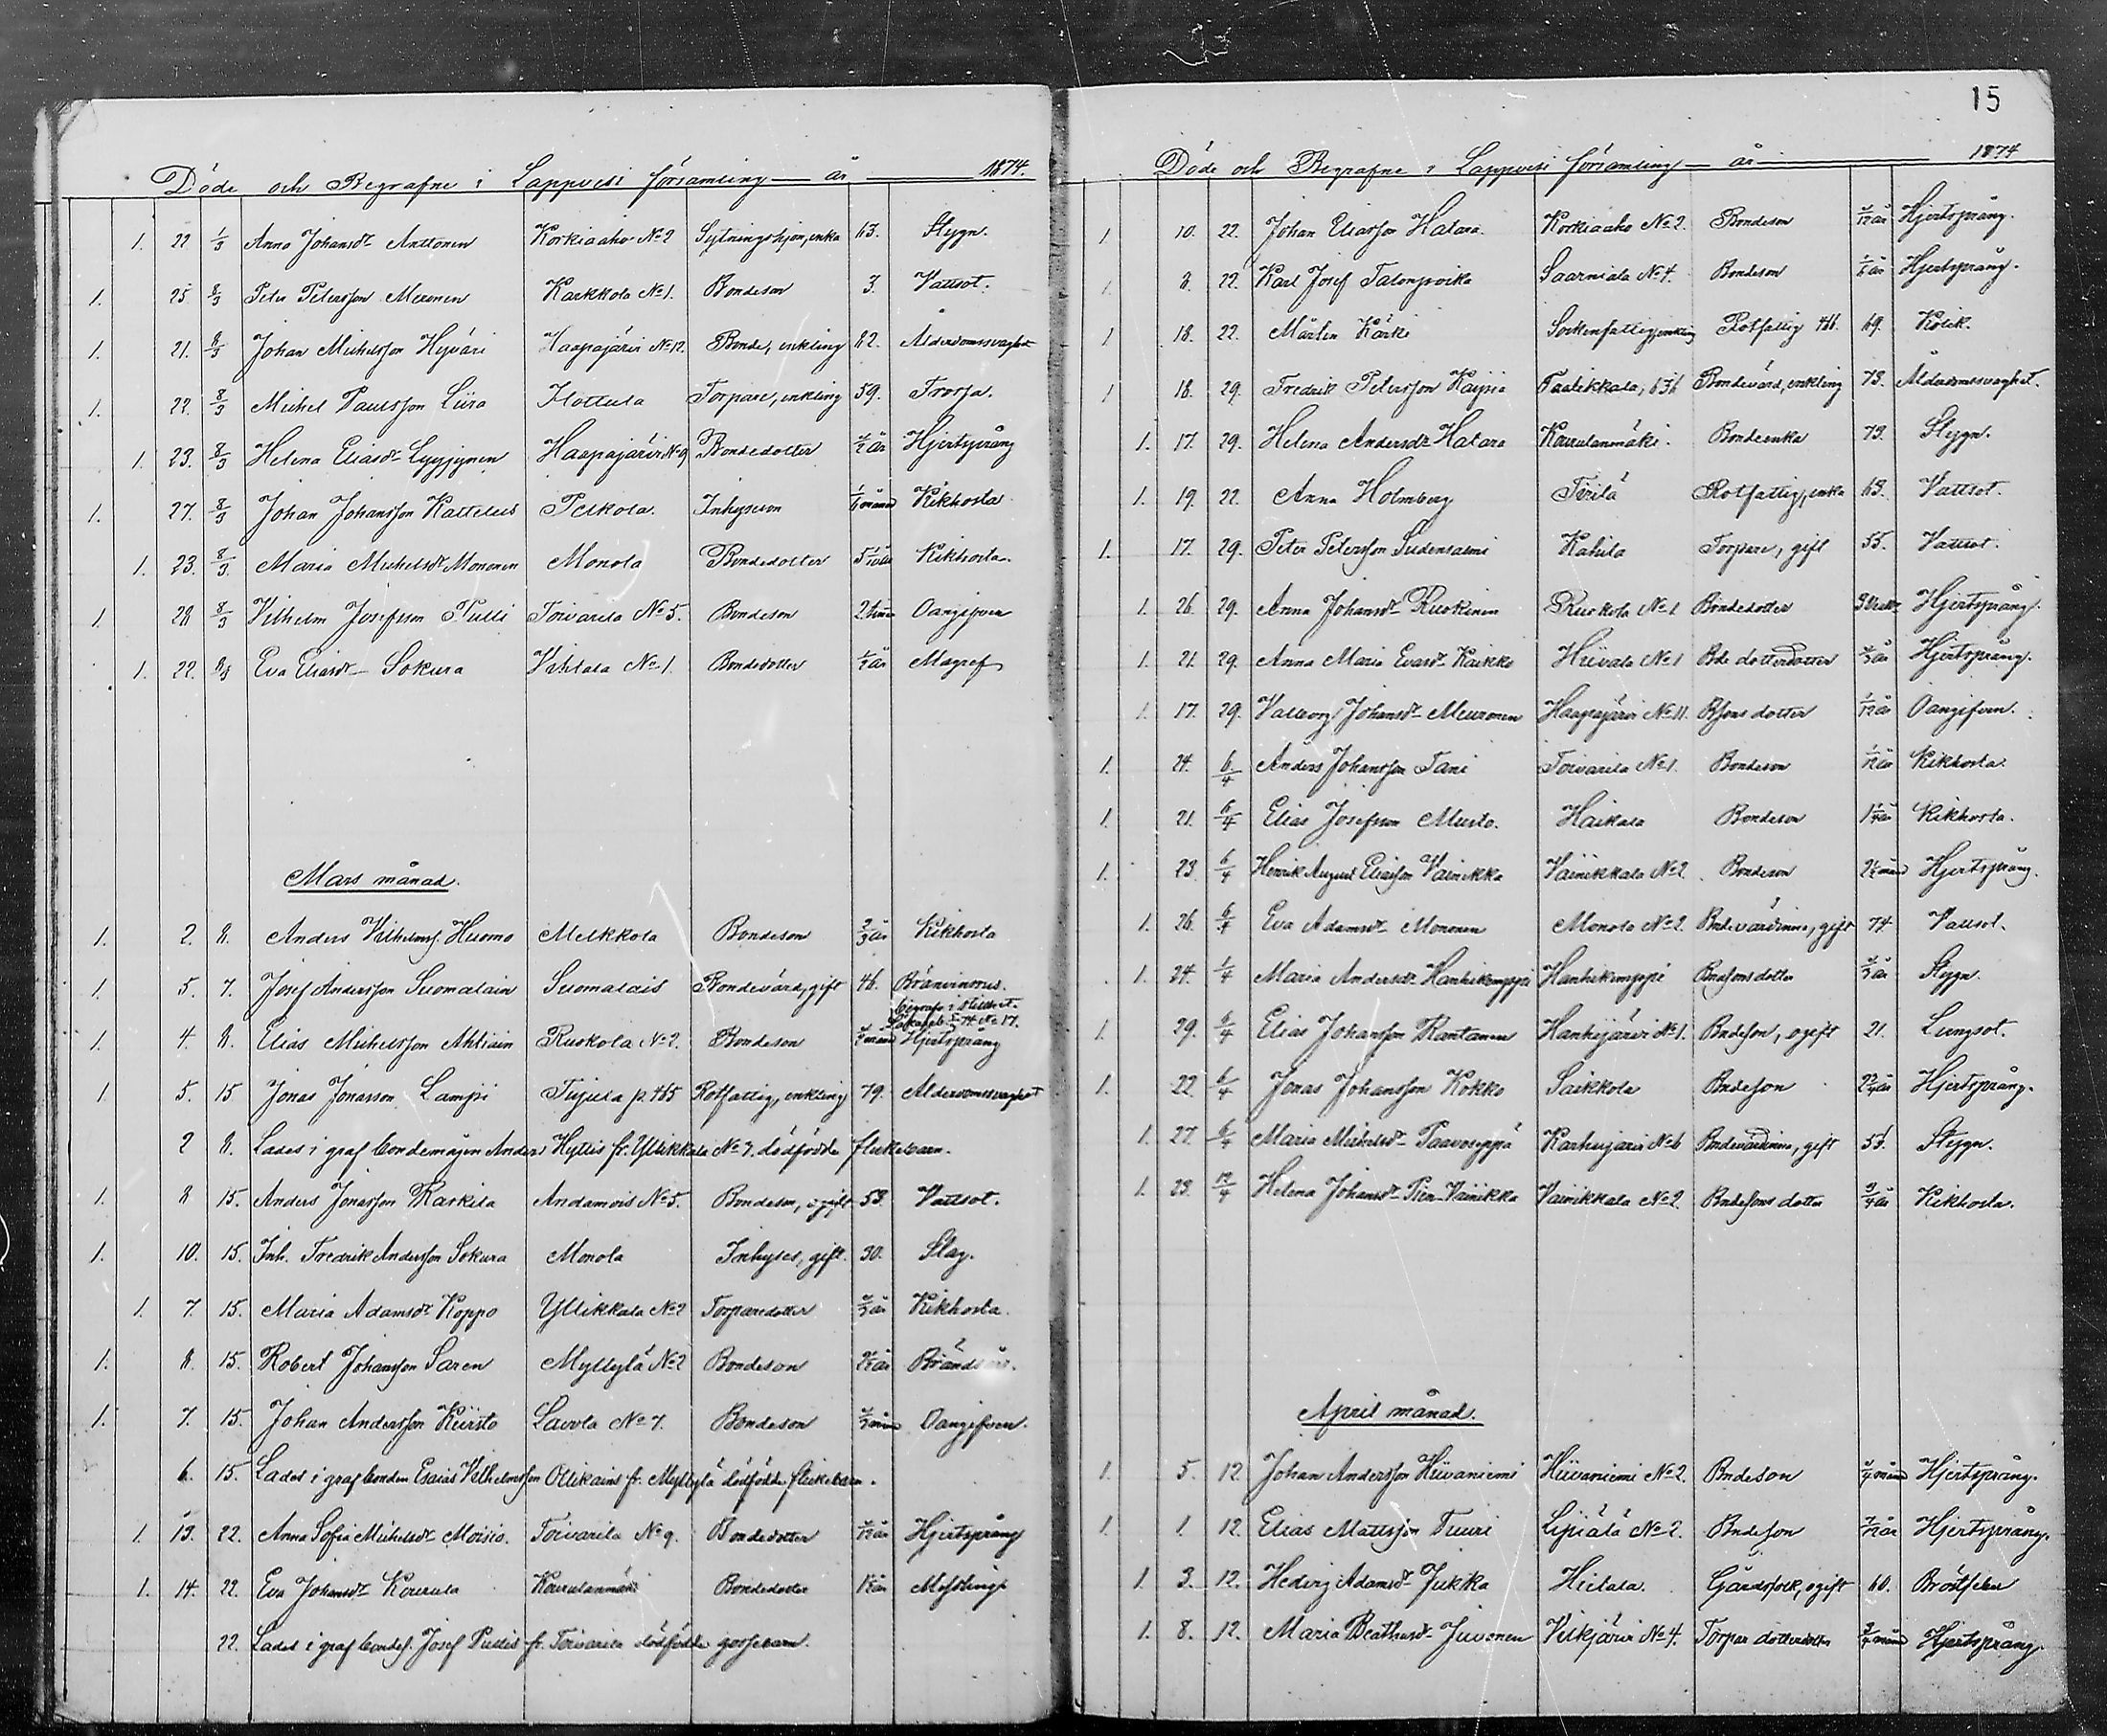 Döde och Begrafne i Lappvesi församling år 1874.
1. 22 1/3 Anna Johansdr Anttonen Korkiaaho No 2 Sytningshjon, enka 63. Stygn.
1. 25 8/3 Peter Petersson Meronen Karkkola No 1. Bondeson 3. Vattsot.
1. 21. 8/3 Johan Michelsson Hyväri Haapajärvi No 12. Bonde, enkling 62. Ålderdomssvaghet
1. 22. 8/3 Michel Paulsson Liira Ilottula Torpare, enkling 59. Frossa.
1. 23. 8/3 Helena Eliasdr Lyyjynen Haapajärvi No 9 Bondedotter Hjertsprång
1. 27. 8/3 Johan Johansson Kattelus Peikola. Inhyseson Kikhosta
1. 23. 8/3. Maria Michelsdr Mononen Monola Bondedotter Kikhosta.
1 28 8/3 Vilhelm Josefsson Pulli Toivarila No 5. Bondeson Oangifven
1. 22. 8/3 Eva Eliasdr Sokura Vihtala No 1. Bondedotter Magref
Mars månad.
1. 2. 8. Anders Vilhelmsf Huomo Melkkola Bondeson 2/3 år Kikhosta
1. 5. 7. Josef Andersson Suomalain Suomalais Bondevärd, gift 46. Bränvinsrus.
begrafs i stillhet.
No 17.
1. 4. 8. Elias Michelsson Ahtiain Ruokola No 2. Bondeson Hjertsprång
1 5. 15 Jonas Jonasson Lampi Tujula p. 465 Rotfattig, enkling 79. Ålderdomssvaghet
2 8. Lades i graf bondemågen Anders Hyttis fr. Yllikkala No 7. dödfödda flickebarn.
1. 8 15. Anders Jonasson Karkila Andamois No 5. Bondeson, ogift 53. Vattsot.
1. 10. 15. Inh. Fredrik Andersson Sokura Monola Inhyses, gift. 30. Slag.
1. 7. 15. Maria Adamsdr Koppo Yllikkala No 2 Torparedotter Kikhosta.
1. 8. 15. Robert Johansson Saren Myllylä No 2 Bondeson Brändsår.
1. 7. 15. Johan Andersson Kiiristo Lavola No 7. Bondeson Oangifven.
6. 15. Lades i graf bonden Esaias Vilhelmsson Ollikains fr. Myllylä dödfödda flickebarn.
1. 13. 22. Anna Sofia Michelsdr Moisio. Toivarila No 9. Bondedotter Hjertsprång
1. 14. 22. Eva Johansdr Kourula Kourulanmäki Bondedotter Messling
22. Lades i graf bondes. Josef Pullis fr. Toivarila dödfödda gossebarn.
15
Döde och Begrafne i Lappvesi församling år 1874
1 10. 22. Johan Eliasson Hatara. Korkiaaho No 2. Bondeson Hjertsprång.
1. 8. 22. Karl Josef Talonpoika Saarniala No 4. Bondeson Hjertsprång.
1 18. 22. Mårten Kärki Sockenfattig, enkling Rotfattig 466. 69. Kolik.
1 18. 29. Fredrik Petersson Kaijpia Partikkala, 636 Bondevärd, enkling 73. Ålderdomssvaghet.
1. 17. 29. Helena Andersdr Hatara Kourulanmäki. Bondeenka 73. Stygn.
1. 19. 22. Anna Holmberg Tirilä Rotfattig, enka 63. Vattsot.
1. 17. 29. Peter Petersson Sudensalmi Kahila Torpare, gift 55. Vattsot.
1. 26. 29. Anna Johansdr Ruokinen Ruokola No 1 Bondedotter Hjertsprång.
1. 21. 29. Anna Maria Evasdr Kaikko Hiivala No 1 Bde dotterdotter Hjertsprång.
1. 17. 29. Valborg Johansdr Meuronen Haapajärvi No 11. Bsons dotter Oangifven.
1. 24. 6/4 Anders Johansson Tani Toivarila No 1. Bondeson Kikhosta.
1. 21. 6/4 Elias Josefsson Musto. Haikala Bondeson Kikhosta.
1. 23 6/4 Henrik August Eliasson Vainikka Vainikkala No 2. Bondeson Hjertsprång.
1. 26. 6/4 Eva Adamsdr Mononen Monola No 2. Bndevärdinna, gift 74 Vattsot.
1. 24. 1/4 Maria Andersdr Hanhikemppi Hanhikemppi Bndesons dotter Stygn.
1. 29. 6/4 Elias Johansson Rantanen Hanhijärvi No 1. Bndeson, ogift 21. Lungsot.
1. 22. 6/4 Jonas Johansson Kokko Saikkola Bndeson Hjertsprång.
1. 27. 6/4 Maria Michelsdr Paavoseppä Karhujärvi No 6 Bndevärdinna, gift 53. Stygn.
1. 23. 12/4 Helena Johansdr Pien-Vainikka Vainikkala No 2. Bndesons dotter 3/4 år Kikhosta.
April månad.
1. 5. 12. Johan Andersson Hiivaniemi Hiivaniemi No 2. Bndeson Hjertsprång.
1. 1. 12. Elias Mattsson Tuuri Lipiälä No 2. Bndeson 7/12 år Hjertsprång.
1. 3. 12. Hedvig Adamsdr Jukka Hietala. Gårdsfolk, ogift 60. Bröstfeber
1. 8. 12. Maria Beathasdr Juvonen Veikjärvi No 4. Torpar dotterdotter Hjertsprång.